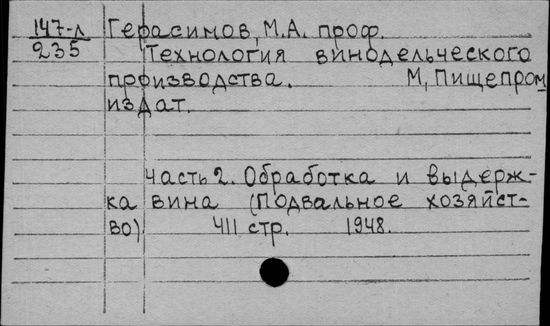 147-л Герасимов, М.А. проф.
235 Технология винодельческого
производства. М, Пищепром
издат.
Часть 2. Обработка и выдерж-
ка вина (Подвальное хозяйст-
во) 411 стр. 1948.